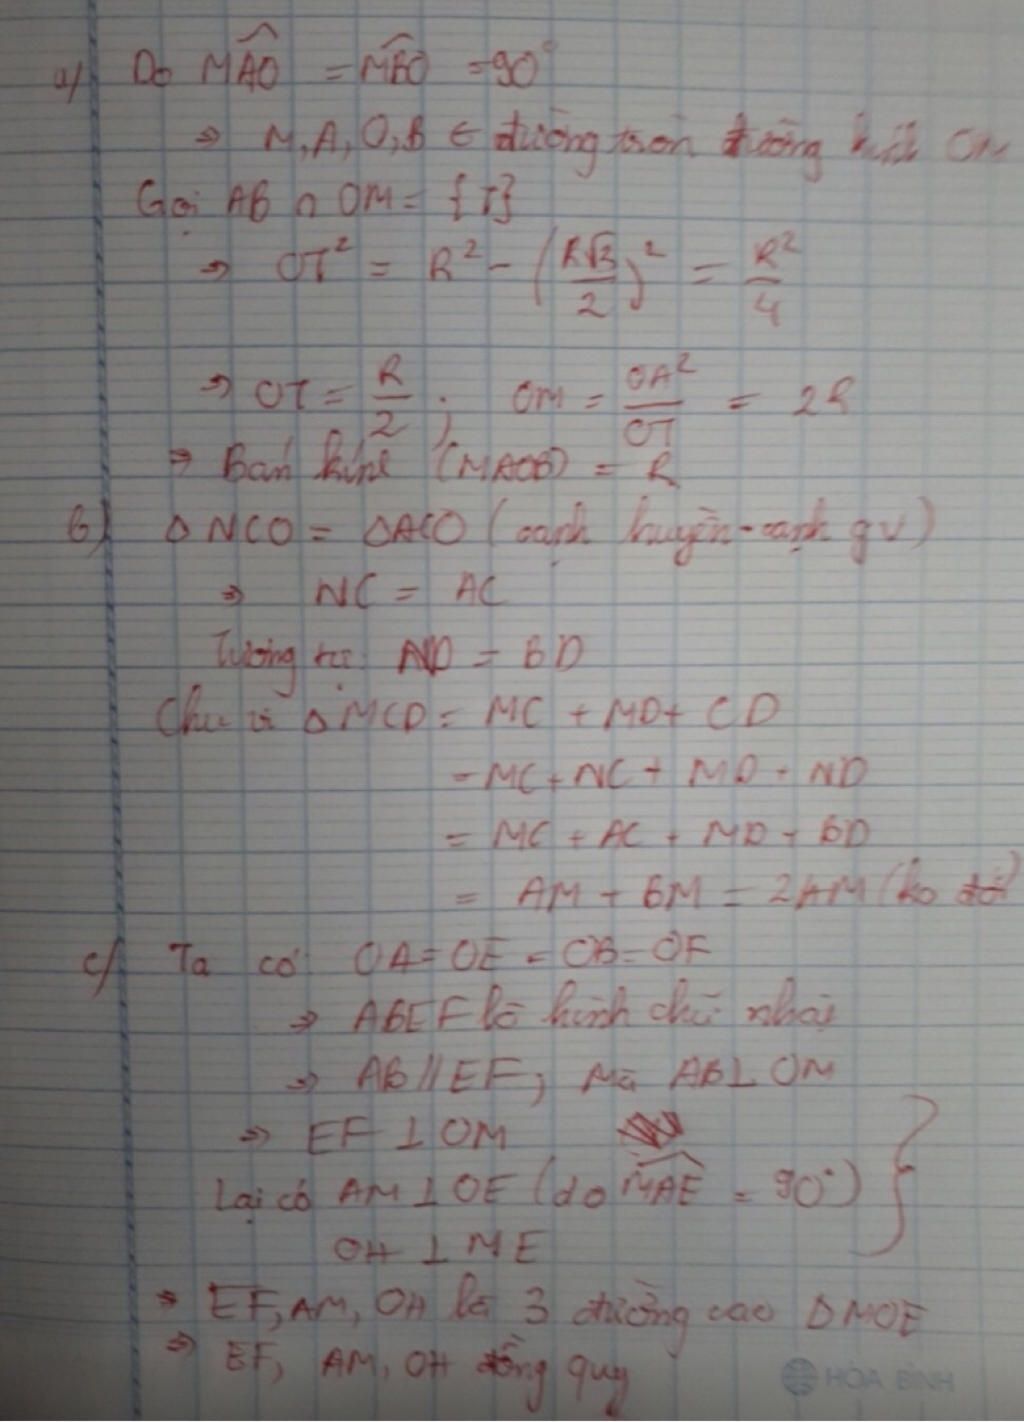 a/ Do MÂO = MBO = 90°
⇒ M, A, O, B ∈ đường tròn đường kính OM
Gọi AB ∩ OM = {T}
⇒ OT² = R² - (R√3/2)² = R²/4
⇒ OT = R/2 ; OM = OA²/OT = 2R
⇒ Bán kính (MAOB) = R
b) Δ NCO = ΔACO (cạnh huyền - cạnh gv)
⇒ NC = AC
Tương tự: ND = BD
Chu vi Δ MCD = MC + MD + CD
= MC + NC + MD + ND
= MC + AC + MD + BD
= AM + BM = 2AM (ko đổi)
c/ Ta có OA = OE = OB = OF
⇒ ABEF là hình chữ nhật
⇒ AB // EF; Mà AB ⊥ OM
⇒ EF ⊥ OM
Lại có AM ⊥ OE (do MAE = 90°)
OH ⊥ ME
⇒ EF, AM, OH là 3 đường cao Δ MOE
⇒ EF, AM, OH đồng quy
HÒA BÌNH